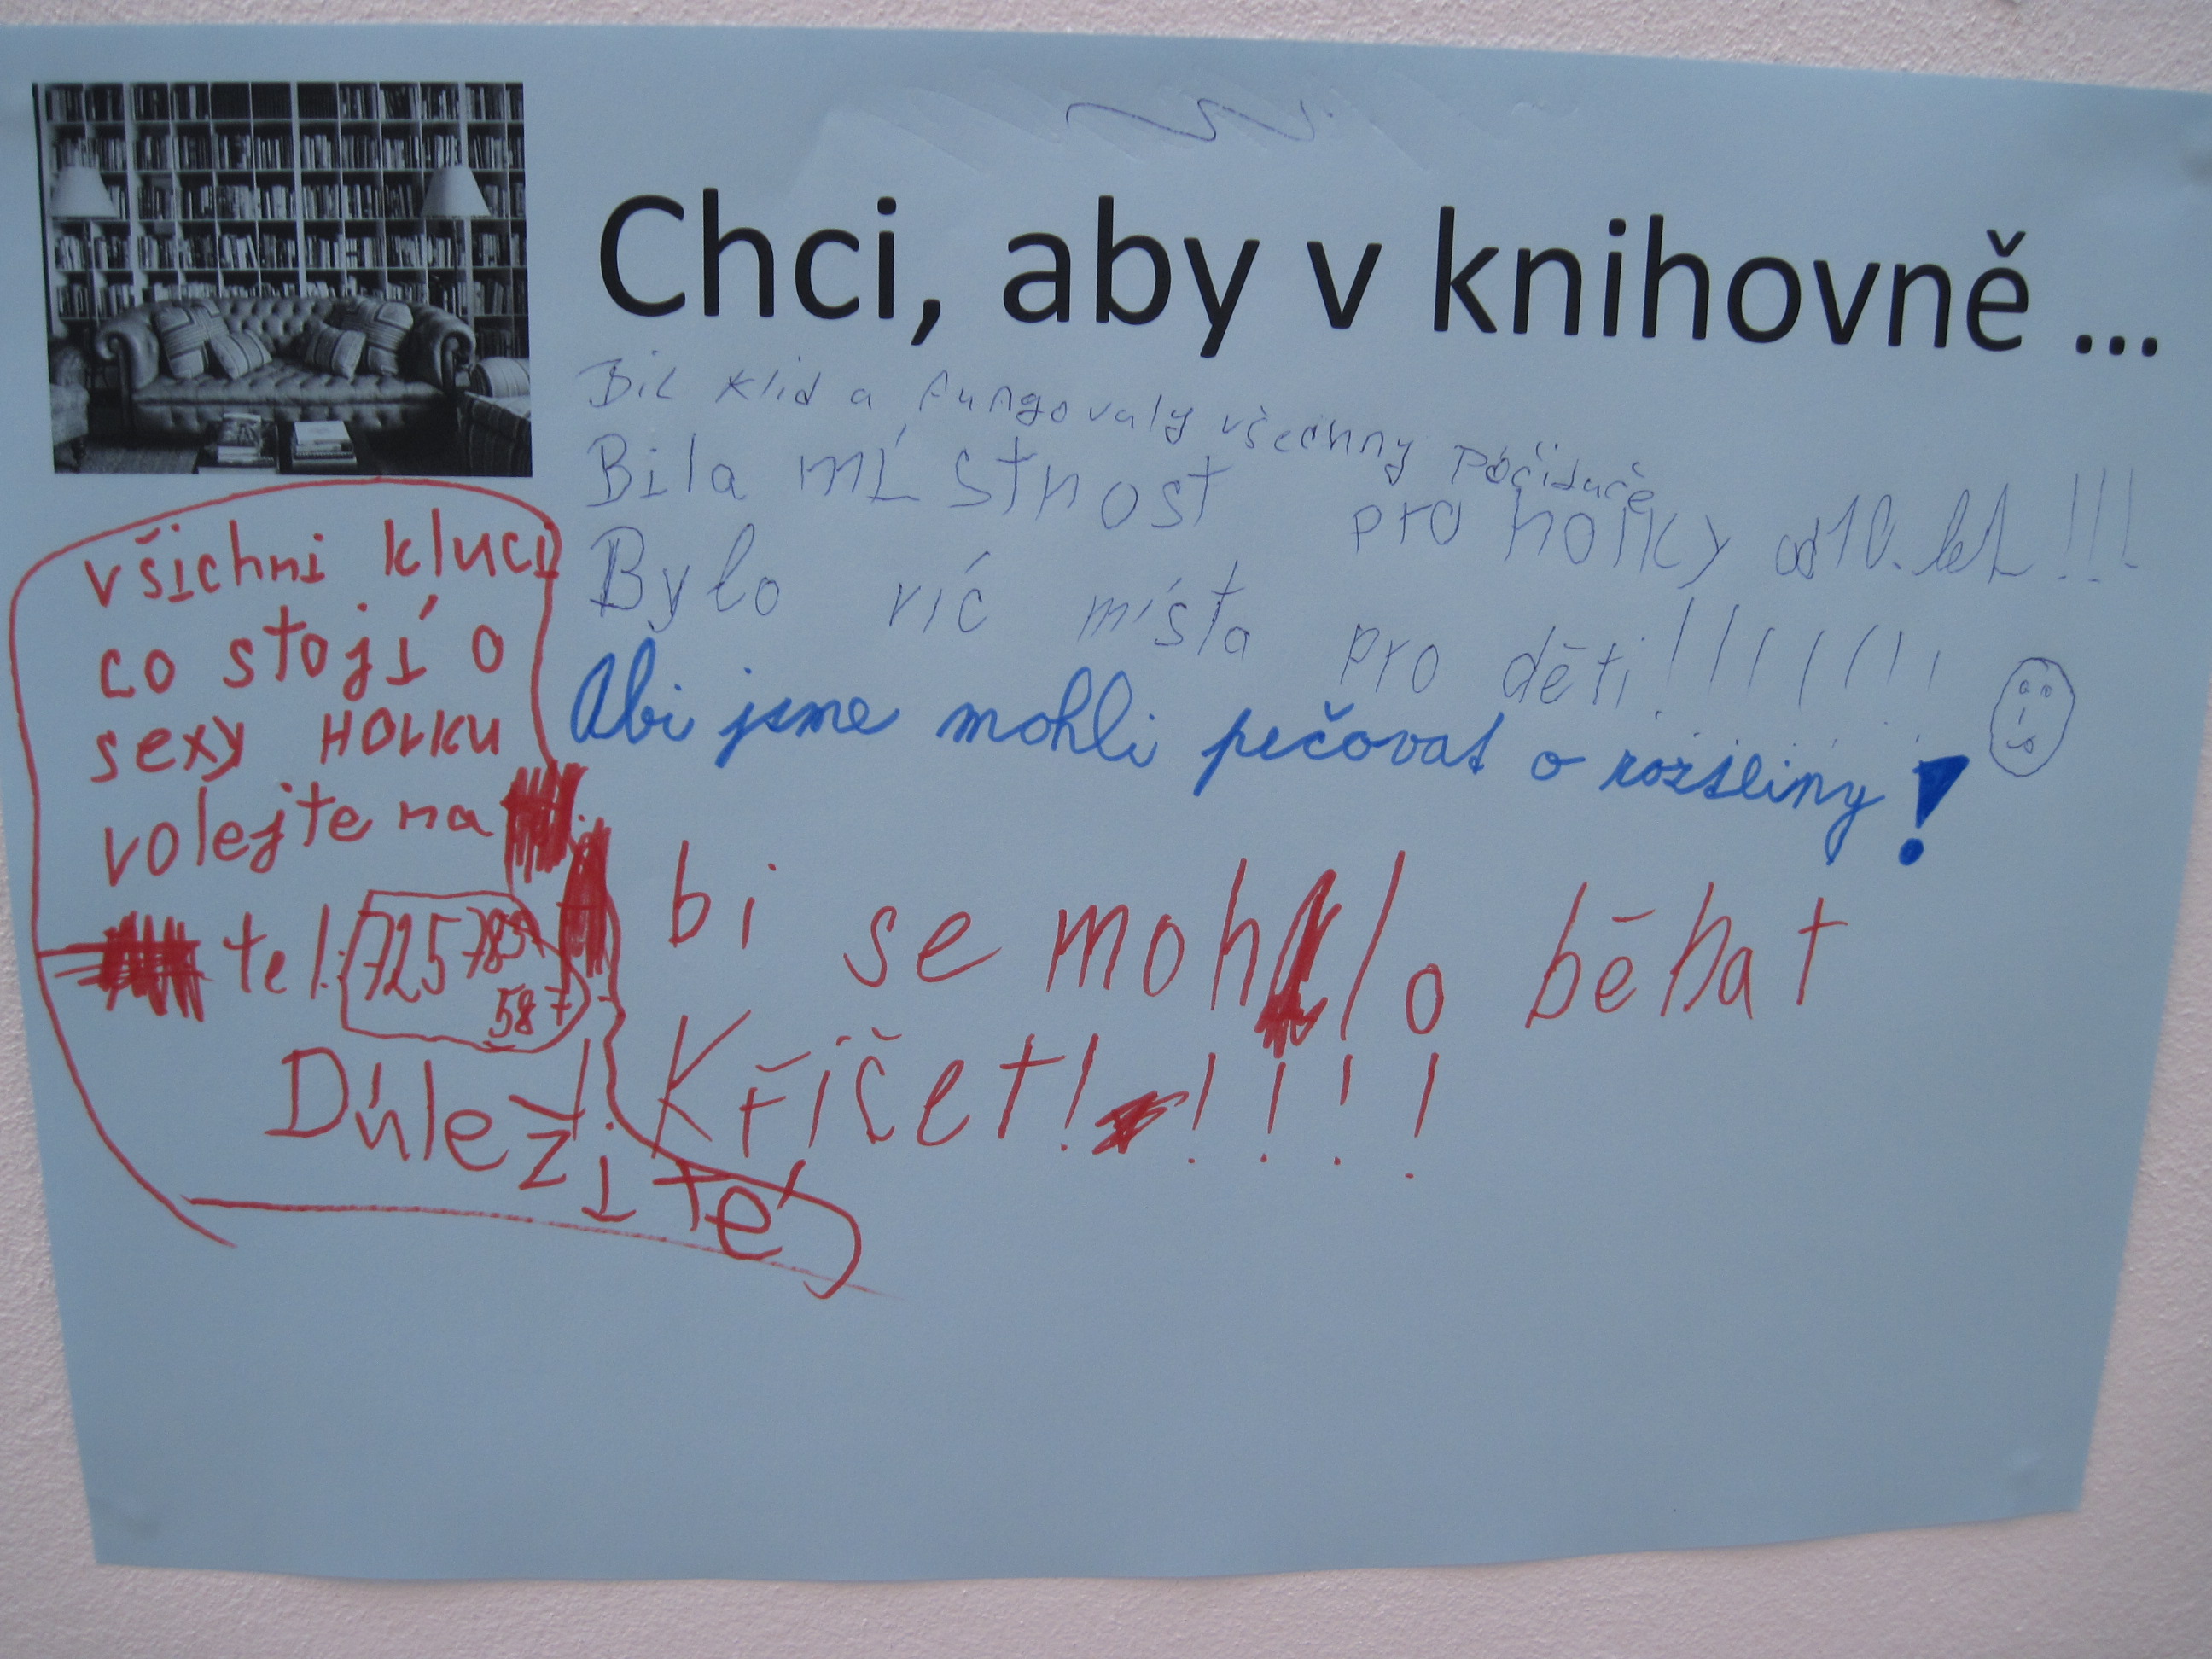 Chci, aby v knihovně ...
Bil klid a fungovaly všechny počidače
Bila místnost pro holky od 10. let !!!
Bylo víc místa pro děti!!!!!!!!
Abi jsme mohli pečovat o rozsliny!
bi se mohlo běhat
Křičet!!!!!
všichni kluci
co stojí o
sexy HOLKU
volejte na
tel: 725 789
587
Důležité!